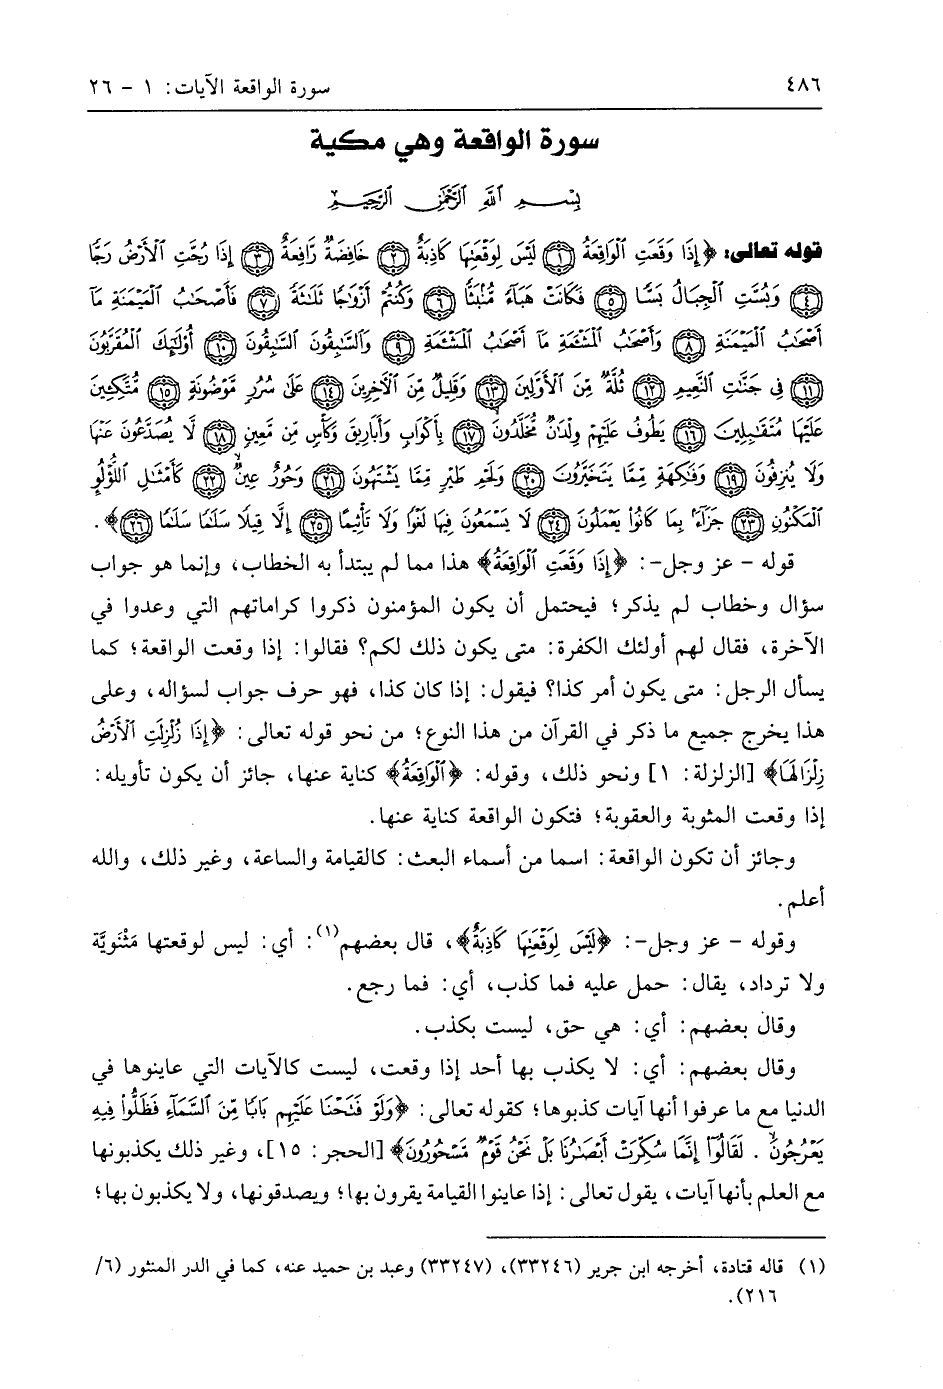 ٤٨٦ سورة الواقعة الآيات: ١ - ٢٦
سورة الواقعة وهي مكية
بِسْمِ ٱللَّهِ ٱلرَّحْمَٰنِ ٱلرَّحِيمِ
قوله تعالى: ﴿إِذَا وَقَعَتِ ٱلْوَاقِعَةُ ﴿١﴾ لَيْسَ لِوَقْعَتِهَا كَاذِبَةٌ ﴿٢﴾ خَافِضَةٌ رَّافِعَةٌ ﴿٣﴾ إِذَا رُجَّتِ ٱلْأَرْضُ رَجًّا
﴿٤﴾ وَبُسَّتِ ٱلْجِبَالُ بَسًّا ﴿٥﴾ فَكَانَتْ هَبَآءً مُّنۢبَثًّا ﴿٦﴾ وَكُنتُمْ أَزْوَٰجًا ثَلَٰثَةً ﴿٧﴾ فَأَصْحَٰبُ ٱلْمَيْمَنَةِ مَآ
أَصْحَٰبُ ٱلْمَيْمَنَةِ ﴿٨﴾ وَأَصْحَٰبُ ٱلْمَشْـَٔمَةِ مَآ أَصْحَٰبُ ٱلْمَشْـَٔمَةِ ﴿٩﴾ وَٱلسَّٰبِقُونَ ٱلسَّٰبِقُونَ ﴿١٠﴾ أُو۟لَٰٓئِكَ ٱلْمُقَرَّبُونَ
﴿١١﴾ فِى جَنَّٰتِ ٱلنَّعِيمِ ﴿١٢﴾ ثُلَّةٌ مِّنَ ٱلْأَوَّلِينَ ﴿١٣﴾ وَقَلِيلٌ مِّنَ ٱلْآخِرِينَ ﴿١٤﴾ عَلَىٰ سُرُرٍ مَّوْضُونَةٍ ﴿١٥﴾ مُّتَّكِـِٔينَ
عَلَيْهَا مُتَقَٰبِلِينَ ﴿١٦﴾ يَطُوفُ عَلَيْهِمْ وِلْدَٰنٌ مُّخَلَّدُونَ ﴿١٧﴾ بِأَكْوَابٍ وَأَبَارِيقَ وَكَأْسٍ مِّن مَّعِينٍ ﴿١٨﴾ لَّا يُصَدَّعُونَ عَنْهَا
وَلَا يُنزِفُونَ ﴿١٩﴾ وَفَٰكِهَةٍ مِّمَّا يَتَخَيَّرُونَ ﴿٢٠﴾ وَلَحْمِ طَيْرٍ مِّمَّا يَشْتَهُونَ ﴿٢١﴾ وَحُورٌ عِينٌ ﴿٢٢﴾ كَأَمْثَٰلِ ٱللُّؤْلُؤِ
ٱلْمَكْنُونِ ﴿٢٣﴾ جَزَآءًۢ بِمَا كَانُوا۟ يَعْمَلُونَ ﴿٢٤﴾ لَا يَسْمَعُونَ فِيهَا لَغْوًا وَلَا تَأْثِيمًا ﴿٢٥﴾ إِلَّا قِيلًا سَلَٰمًا سَلَٰمًا ﴿٢٦﴾﴾.
قوله - عز وجل-: ﴿إِذَا وَقَعَتِ ٱلْوَاقِعَةُ﴾ هذا مما لم يبتدأ به الخطاب، وإنما هو جواب
سؤال وخطاب لم يذكر؛ فيحتمل أن يكون المؤمنون ذكروا كراماتهم التي وعدوا في
الآخرة، فقال لهم أولئك الكفرة: متى يكون ذلك لكم؟ فقالوا: إذا وقعت الواقعة؛ كما
يسأل الرجل: متى يكون أمر كذا؟ فيقول: إذا كان كذا، فهو حرف جواب لسؤاله، وعلى
هذا يخرج جميع ما ذكر في القرآن من هذا النوع؛ من نحو قوله تعالى: ﴿إِذَا زُلْزِلَتِ ٱلْأَرْضُ
زِلْزَالَهَا﴾ [الزلزلة: ١] ونحو ذلك، وقوله: ﴿ٱلْوَاقِعَةُ﴾ كناية عنها، جائز أن يكون تأويله:
إذا وقعت المثوبة والعقوبة؛ فتكون الواقعة كناية عنها.
وجائز أن تكون الواقعة: اسما من أسماء البعث: كالقيامة والساعة، وغير ذلك، والله
أعلم.
وقوله - عز وجل-: ﴿لَيْسَ لِوَقْعَتِهَا كَاذِبَةٌ﴾، قال بعضهم(١): أي: ليس لوقعتها مَثْنَويَّة
ولا ترداد، يقال: حمل عليه فما كذب، أي: فما رجع.
وقال بعضهم: أي: هي حق، ليست بكذب.
وقال بعضهم: أي: لا يكذب بها أحد إذا وقعت، ليست كالآيات التي عاينوها في
الدنيا مع ما عرفوا أنها آيات كذبوها؛ كقوله تعالى: ﴿وَلَوْ فَتَحْنَا عَلَيْهِم بَابًا مِّنَ ٱلسَّمَآءِ فَظَلُّوا۟ فِيهِ
يَعْرُجُونَ. لَقَالُوٓا۟ إِنَّمَا سُكِّرَتْ أَبْصَٰرُنَا بَلْ نَحْنُ قَوْمٌ مَّسْحُورُونَ﴾ [الحجر: ١٥]، وغير ذلك يكذبونها
مع العلم بأنها آيات، يقول تعالى: إذا عاينوا القيامة يقرون بها؛ ويصدقونها، ولا يكذبون بها؛
(١) قاله قتادة، أخرجه ابن جرير (٣٣٢٤٦)، (٣٣٢٤٧) وعبد بن حميد عنه، كما في الدر المنثور (٦/
٢١٦).